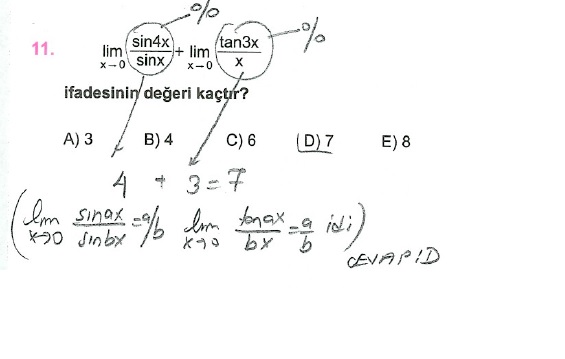 %
11. lim x→0 sin4x/sinx + lim x→0 tan3x/x %
ifadesinin değeri kaçtır?
A) 3 B) 4 C) 6 D) 7 E) 8
4 + 3 = 7
(lim x→0 sinax/sinbx = a/b lim x→0 tanax/bx = a/b idi)
CEVAP D